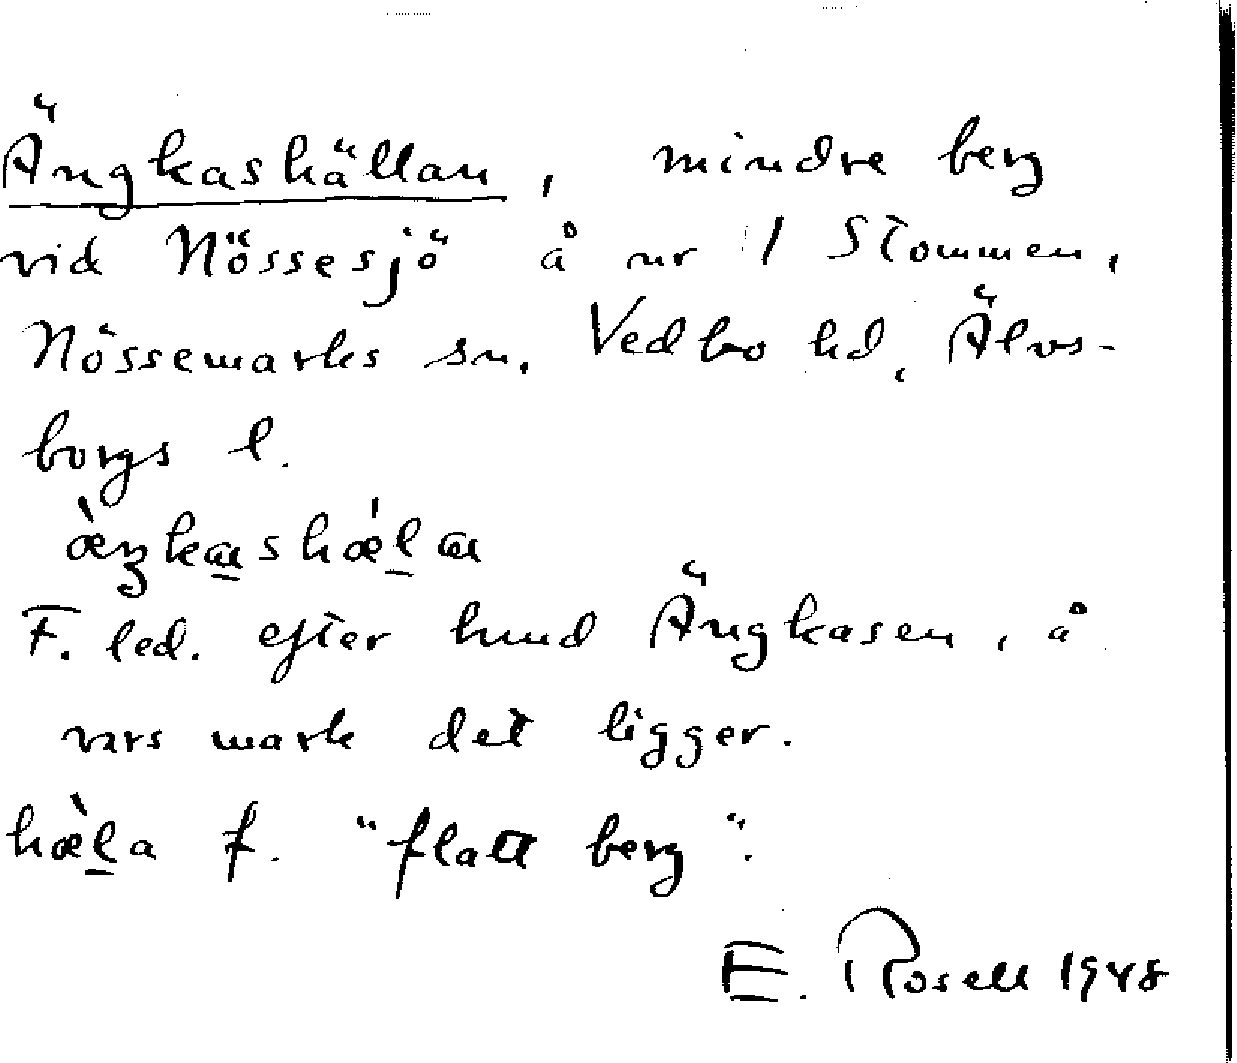 Ängkashällan, mindre berg
vid Nössesjö å nr 1 Stommen,
Nössemarks sn. Vedbo hd, Älvs-
borgs l.
æ̀ŋkɑshæ̀lɑ
F. led. efter hmd Ängkasen, å
vars mark det ligger.
hæ̀la f. "flatt berg".
E. Rosell 1948